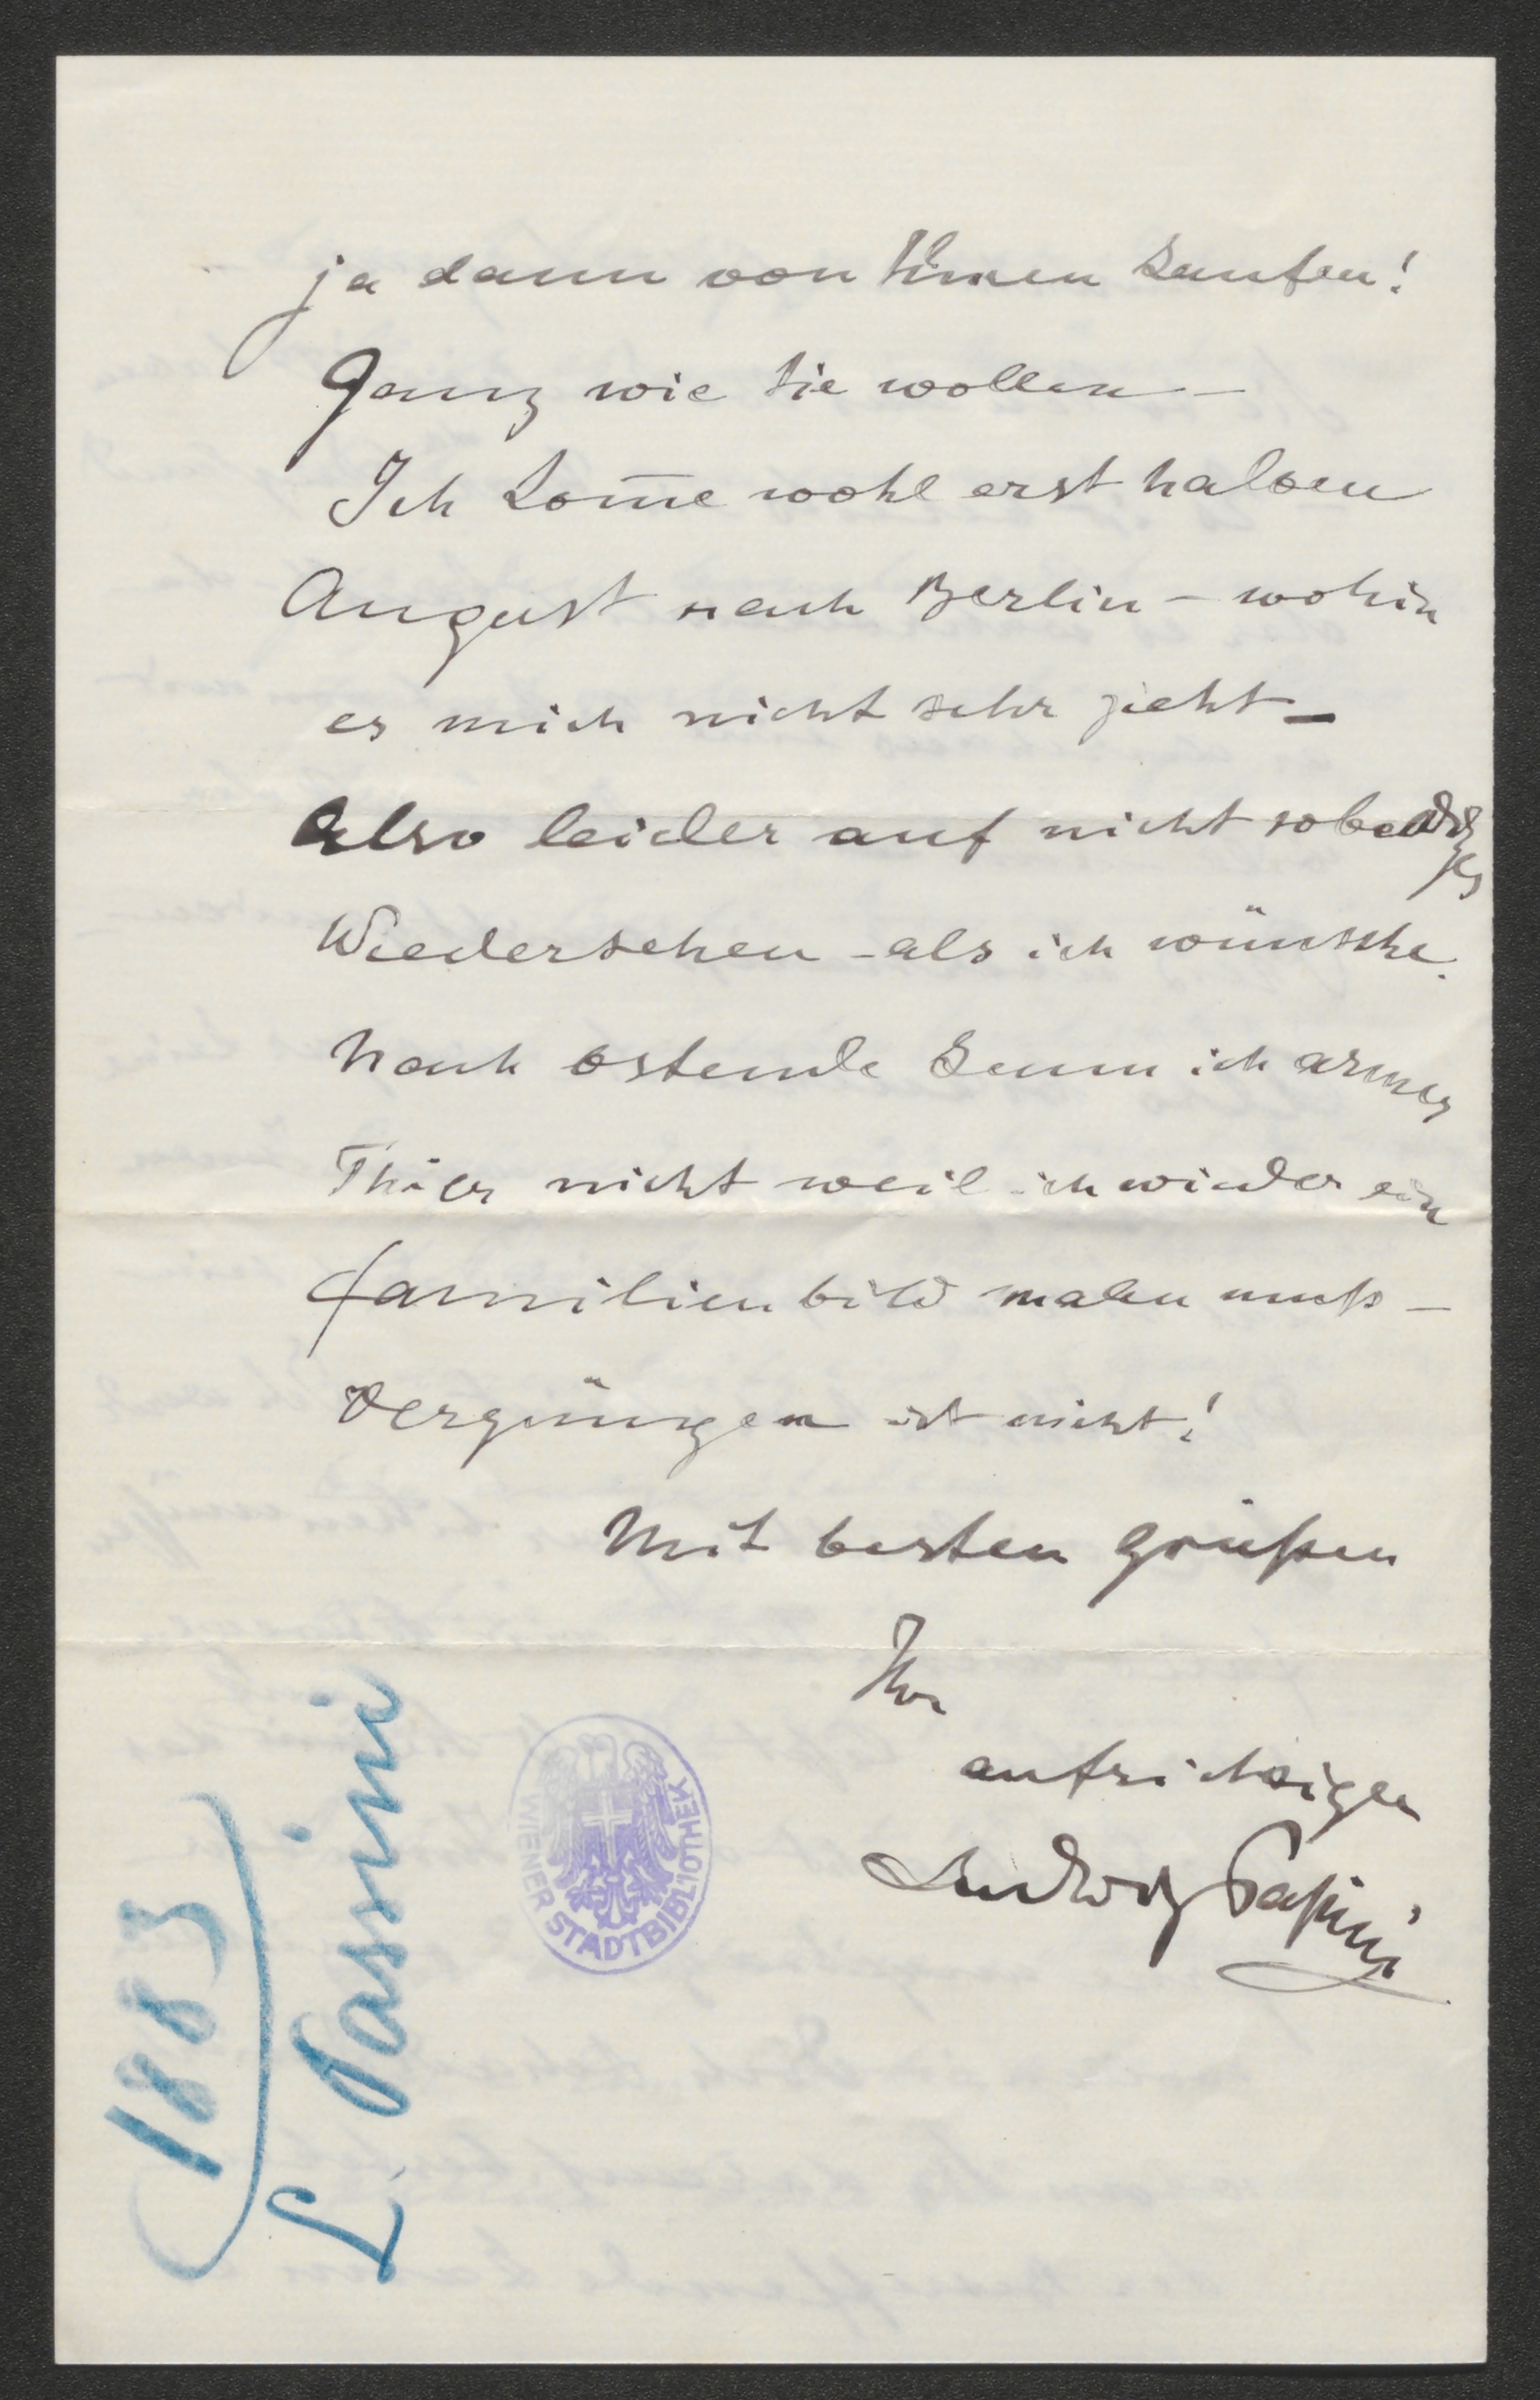 ja dann von Ihnen kaufen!
Ganz wie Sie wollen –
Ich kom̅e wohl erst halben
August nach Berlin – wohin
es mich nicht sehr zieht –
Also leider auf nicht so baldiges
Wiedersehen – als ich wünsche.
Nach Ostende kann ich armes
Thier nicht weil ich wieder ein
Familienbild malen muß –
Vergnügen ist nicht!
Mit besten Grüßen
Ihr
aufrichtiger
Ludwig Paßini
L. Passini
1883
WIENER STADTBIBLIOTHEK